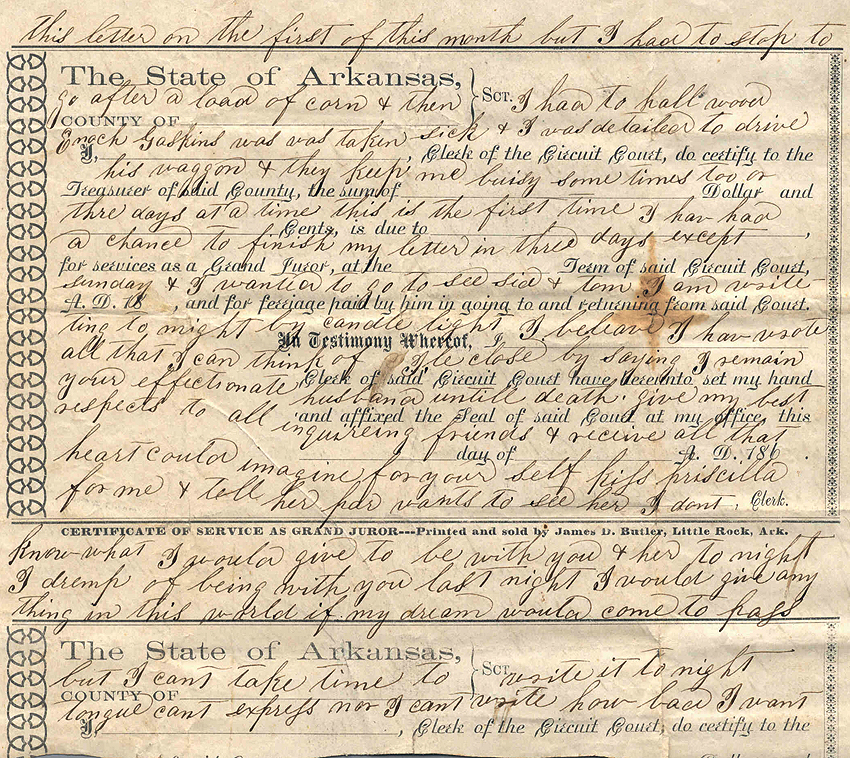 this letter on the first of this month but I had to stop to
The State of Arkansas,
go after a load of corn & then
Sct. I had to hall wood
COUNTY OF
Enoch Gaskins was was taken sick & I was detailed to drive
I, , Clerk of the Circuit Court, do certify to the
his waggon & they keep me buisy some times too or
Treasurer of said County, the sum of Dollar and
three days at a time this is the first time I hav had
Cents, is due to ,
a chance to finish my letter in three days except
for services as a Grand Juror, at the Term of said Circuit Court,
sunday & I wanted to go to see sid & tom I am write
A. D. 18 , and for ferriage paid by him in going to and returning from said Court.
ting to night by candle light I beleave I hav wrote
In Testimony Whereof, I
all that I can think of Ile close by saying I remain
Clerk of said Circuit Court have hereunto set my hand
your effectionate husband untill death. give my best
and affixed the Seal of said Court at my office, this
respects to all inquireing friends & receive all that
day of A. D. 186 .
heart could imagine for your self kiss priscilla
for me & tell her par wants to see her I dont
, Clerk.
CERTIFICATE OF SERVICE AS GRAND JUROR---Printed and sold by James D. Butler, Little Rock, Ark.
Know what I would give to be with you & her to night
I dremp of being with you last night I would give any
thing in this world if my dream would come to pass
The State of Arkansas,
but I cant take time to
Sct. write it to night
COUNTY OF
tongue cant express nor I cant write how bad I want
I, , Clerk of the Circuit Court, do certify to the